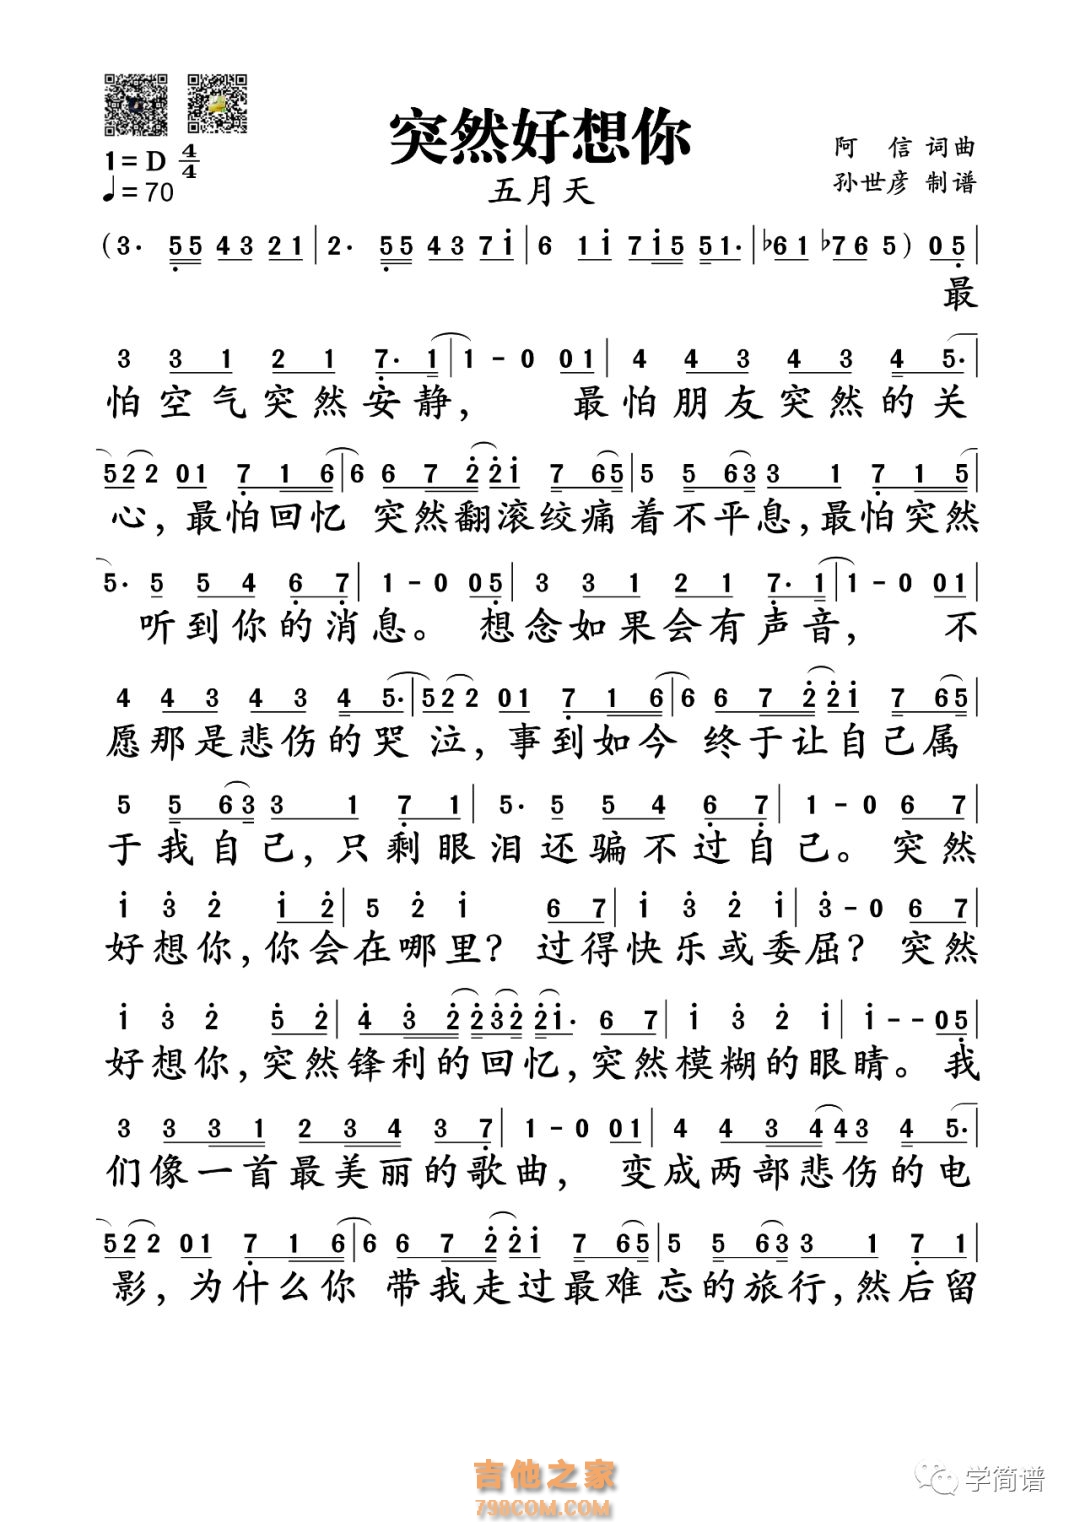 突然好想你
五月天
阿 信 词曲
孙世彦 制谱
1=D 4/4
♩=70
(3. 55 43 21|2. 55 43 7i|6 1i 7i5 51.|♭61 ♭765) 05|
最
3 3 1 2 1 7. 1|1-0 01|4 4 3 4 3 4 5.|
怕空气突然安静， 最怕朋友突然的关
522 01 7 1 6|6 6 7 22i 7 65|5 5 633 1 7 1 5|
心，最怕回忆 突然翻滚绞痛着不平息，最怕突然
5. 5 5 4 6 7|1-0 05|3 3 1 2 1 7. 1|1-0 01|
听到你的消息。 想念如果会有声音， 不
4 4 3 4 3 4 5.|522 01 7 1 6|6 6 7 22i 7 65|
愿那是悲伤的哭泣，事到如今 终于让自己属
5 5 633 1 7 1|5. 5 5 4 6 7|1-0 6 7|
于我自己，只剩眼泪还骗不过自己。突然
i 3 2 i2|5 2 i 67|i 3 2 i|3-0 67|
好想你，你会在哪里？过得快乐或委屈？突然
i 3 2 52|4 3 2232 2i. 67|i 3 2 i|i--05|
好想你，突然锋利的回忆，突然模糊的眼睛。我
3 3 3 1 2 3 4 3 7|1-0 01|4 4 3 443 4 5.|
们像一首最美丽的歌曲， 变成两部悲伤的电
522 01 7 1 6|6 6 7 22i 7 65|5 5 633 1 7 1|
影，为什么你 带我走过最难忘的旅行，然后留
吉他之家
798COM.COM
学简谱